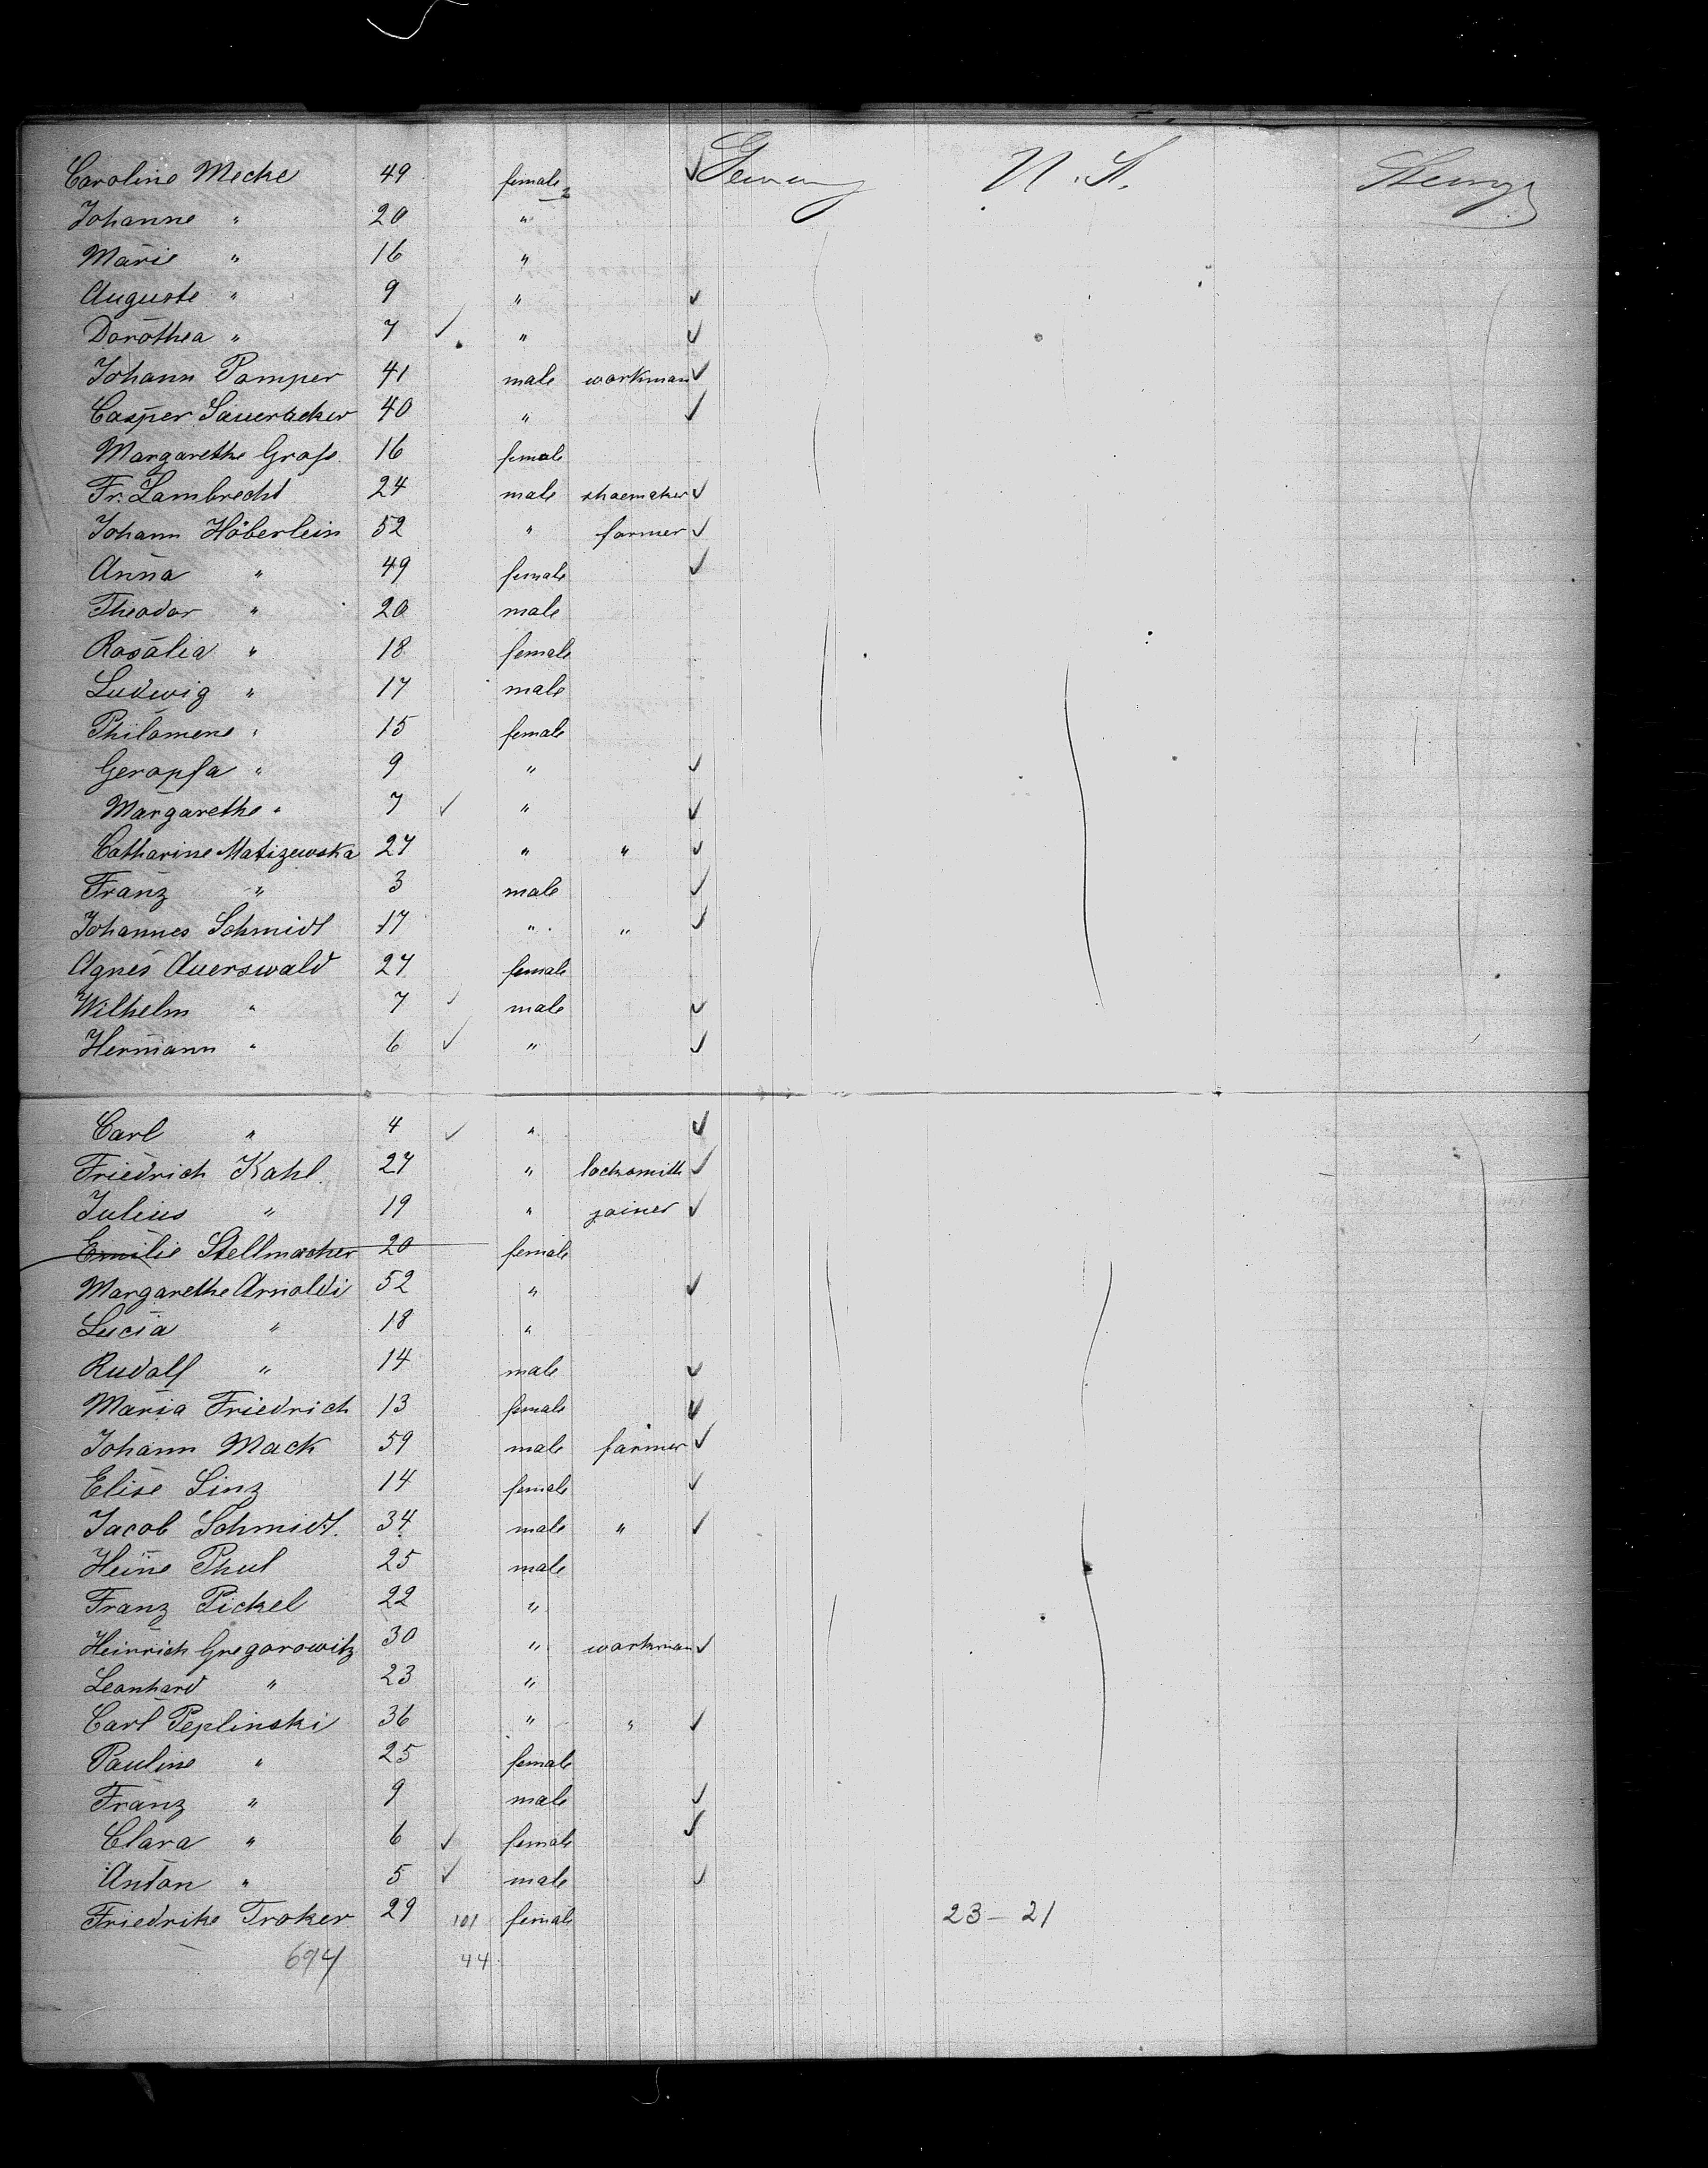 Caroline Mecke 49 female Germany U. St. Steerage
Johanne " 20 "
Marie " 16 "
Auguste " 9 "
Dorothea " 7 "
Johann Pamper 41 male workman
Casper Saueracker 40 "
Margarethe Groß 16 female
Fr. Lambrecht 24 male shoemaker
Johann Höberlein 52 " farmer
Anna " 49 female
Theodor " 20 male
Rosalia " 18 female
Ludwig " 17 male
Philomene " 15 female
9 "
Margarethe " 7 "
Catharine Matizewska 27 " "
Franz " 3 male
Johannes Schmidt 17 " "
Agnes Auerswald 27 female
Wilhelm " 7 male
Hermann " 6 "
Carl " 4 "
Friedrich Kahl 27 " locksmith
Julius " 19 " joiner
Emilie Stellmacher 20 female
Margarethe Arnoldi 52 "
Lucia " 18 "
Rudolf " 14 male
Maria Friedrich 13 female
Johann Mack 59 male farmer
Elise Sinz 14 female
Jacob Schmidt. 34 male "
Heine Phul 25 male
Franz Pickel 22 "
Heinrich Gregorowitz 30 " workman
Leonhard " 23 "
Carl Peplinski 36 " "
Pauline " 25 female
Franz " 9 male
Clara " 6 female
Anton " 5 male
Friedrike Troker 29 101 female 23-21
694 44